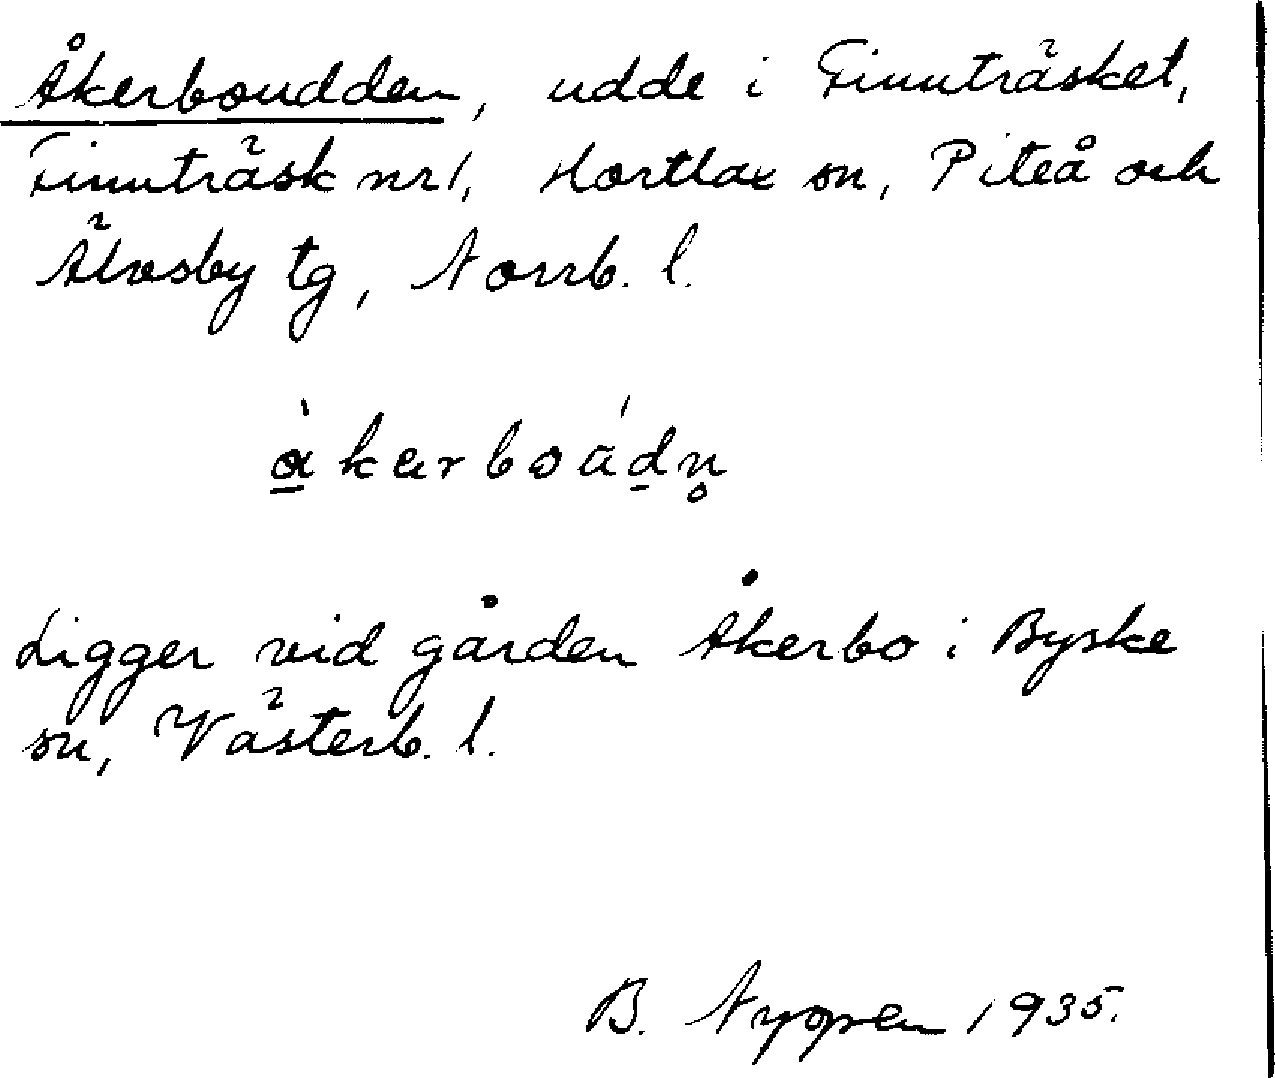 Åkerboudden, udde i Finnträsket,
Finnträsk nr 1, Hortlax sn, Piteå och
Älvsby tg, Norrb. l.
Ligger vid gården Åkerbo i Byske
sn, Västerb. l.
B. 1935.